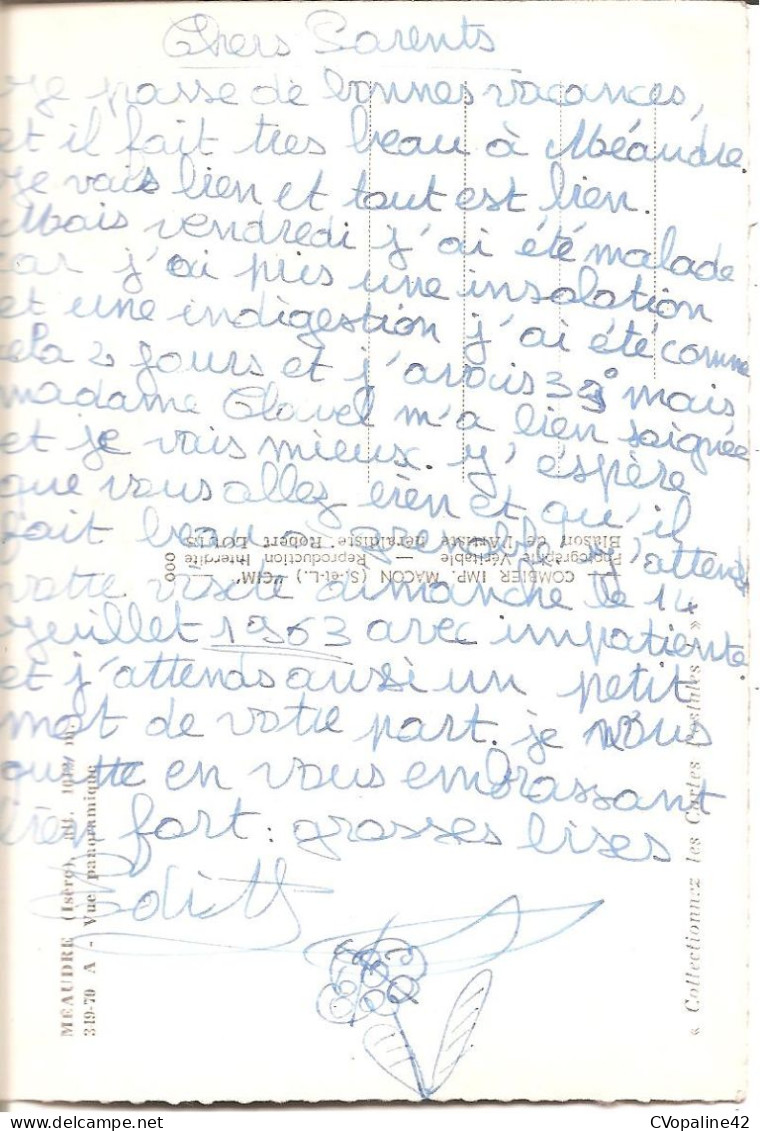 Chers Parents
Je passe de bonnes vacances,
et il fait tres beau à Méaudre.
Je vais bien et tout est bien.
Mais vendredi j'ai été malade
car j'ai pris une insolation
et une indigestion j'ai été comme
cela 2 jours et j'avais 39° mais
madame Clavel m'a bien soignée
et je vais mieux. J'éspère
que vous allez bien et qu'il
fait beau à Grenoble j'attend
votre visite dimanche le 14
Jeuillet 1963 avec impatiente
et j'attends aussi un petit
mot de votre part. je vous
quitte en vous embrassant
bien fort: grosses bises
Edith
COMBIER IMP. MACON (S.-et-L.) "CIM"
Photographie Véritable — Reproduction Interdite
Blason de l'Artiste héraldiste Robert LOUIS
000
MEAUDRE (Isère), alt. m.
349-79 A - Vue panoramique
« Collectionnez les Cartes Postales »
CVopaline42